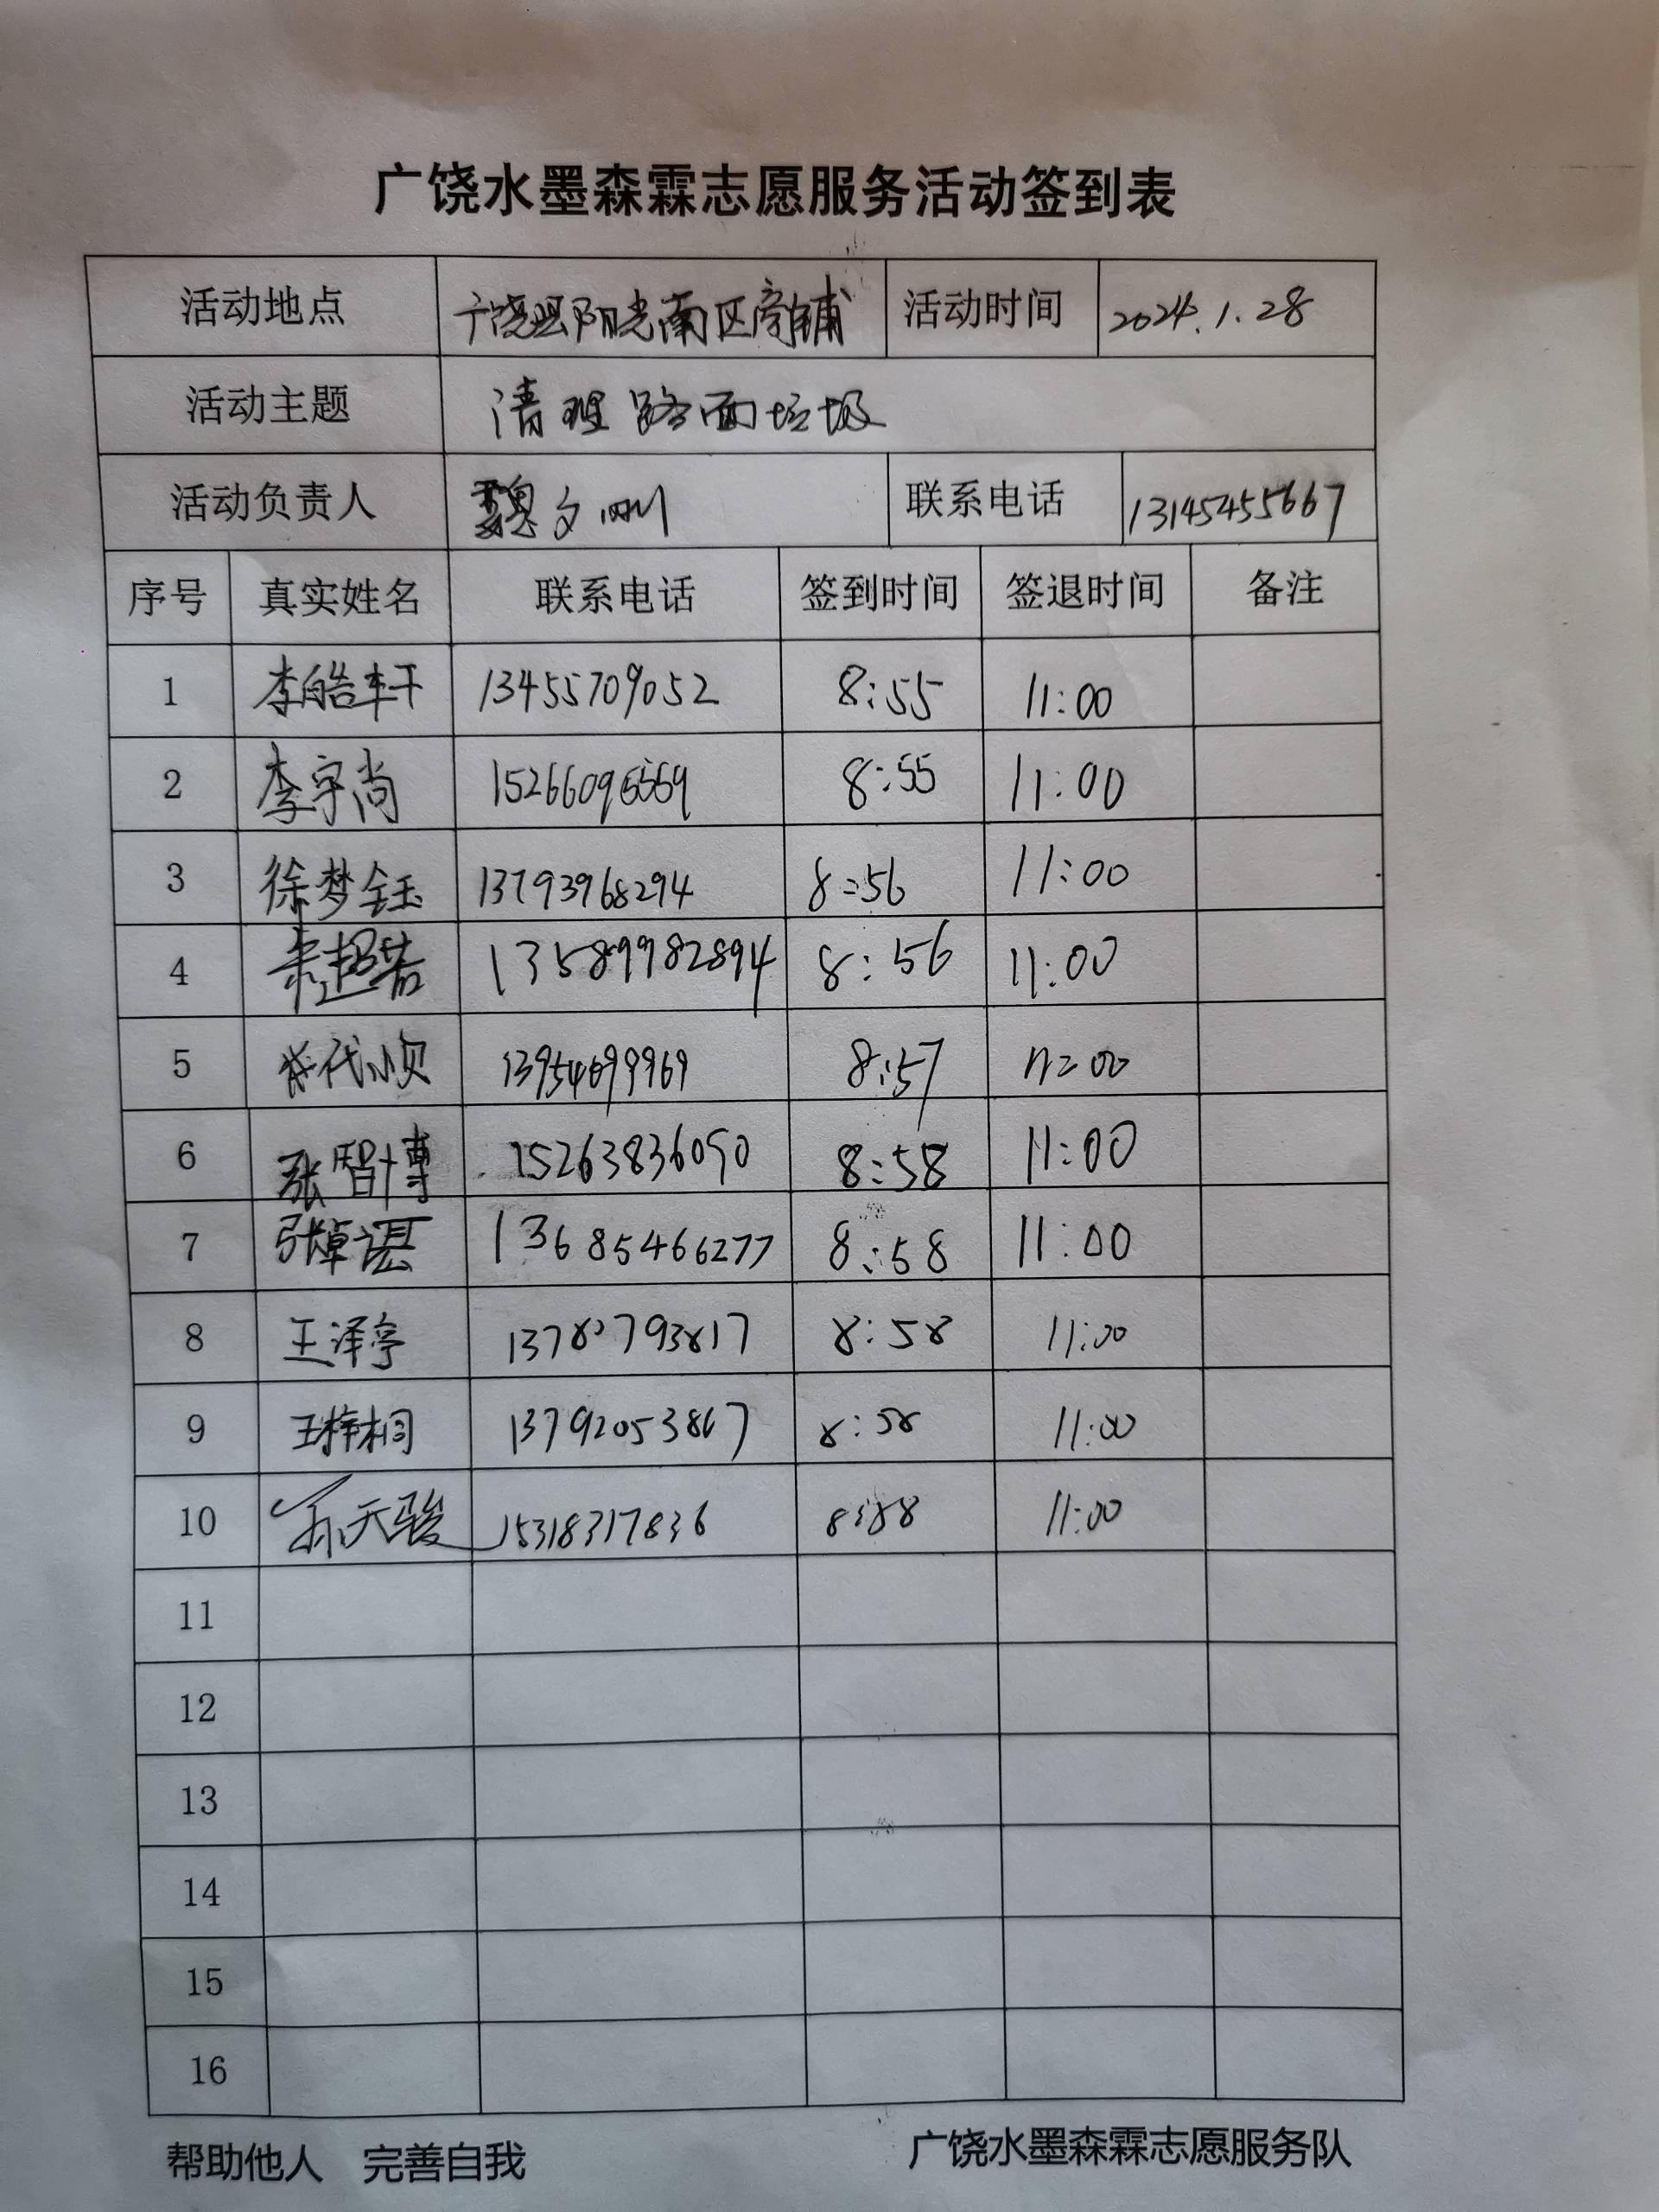 广饶水墨森霖志愿服务活动签到表
活动地点 广饶县阳光南区商铺 活动时间 2024.1.28
活动主题 清理路面垃圾
活动负责人 魏文刚 联系电话 13145455667
序号 真实姓名 联系电话 签到时间 签退时间 备注
1 李皓轩 13455709052 8:55 11:00
2 李宇尚 8:55 11:00
3 徐梦钰 13793968294 8:56 11:00
4 13589982894 8:56 11:00
5 13954699969 8:57 11:00
6 张智博 15263836090 8:58 11:00
7 张卓谌 13685466277 8:58 11:00
8 王泽亭 8:58 11:00
9 王梓桐 13792053867 8:58 11:00
10 孙天骏 15318317836 8:58 11:00
11
12
13
14
15
16
帮助他人 完善自我 广饶水墨森霖志愿服务队